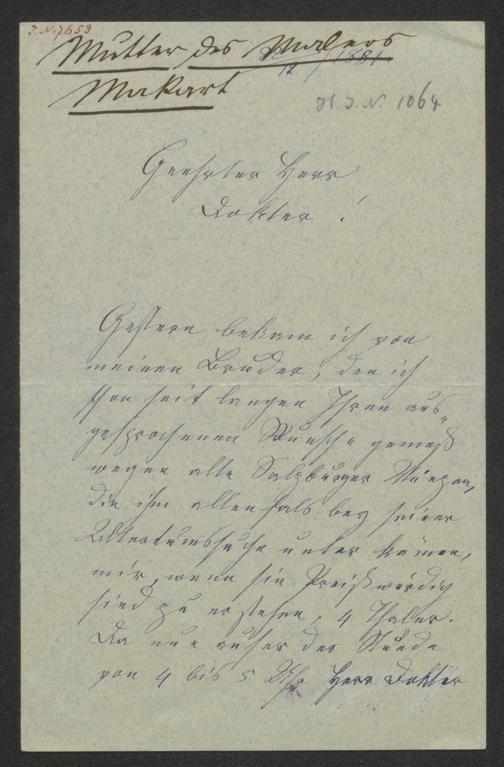 J. N. 7653
Mutter des Malers
Makart
12 / 1881
H. I. N. 1064
Geehrter Herr
Doktor !
Gestern bekam ich von
meinen Bruder, den ich
schon seit langen Ihren aus-
gesprochenen Wunsche gemeß
wegen alte Salzburger Münzen,
die ihm allenfals bey seiner
Altertumssuche unter kämen,
mir, wenn sie Preiswürdig
sind zu erstehen, 4 Thaler.
Da nun außer der Stunde
von 4 bis 5 Uhr Herr Doktor